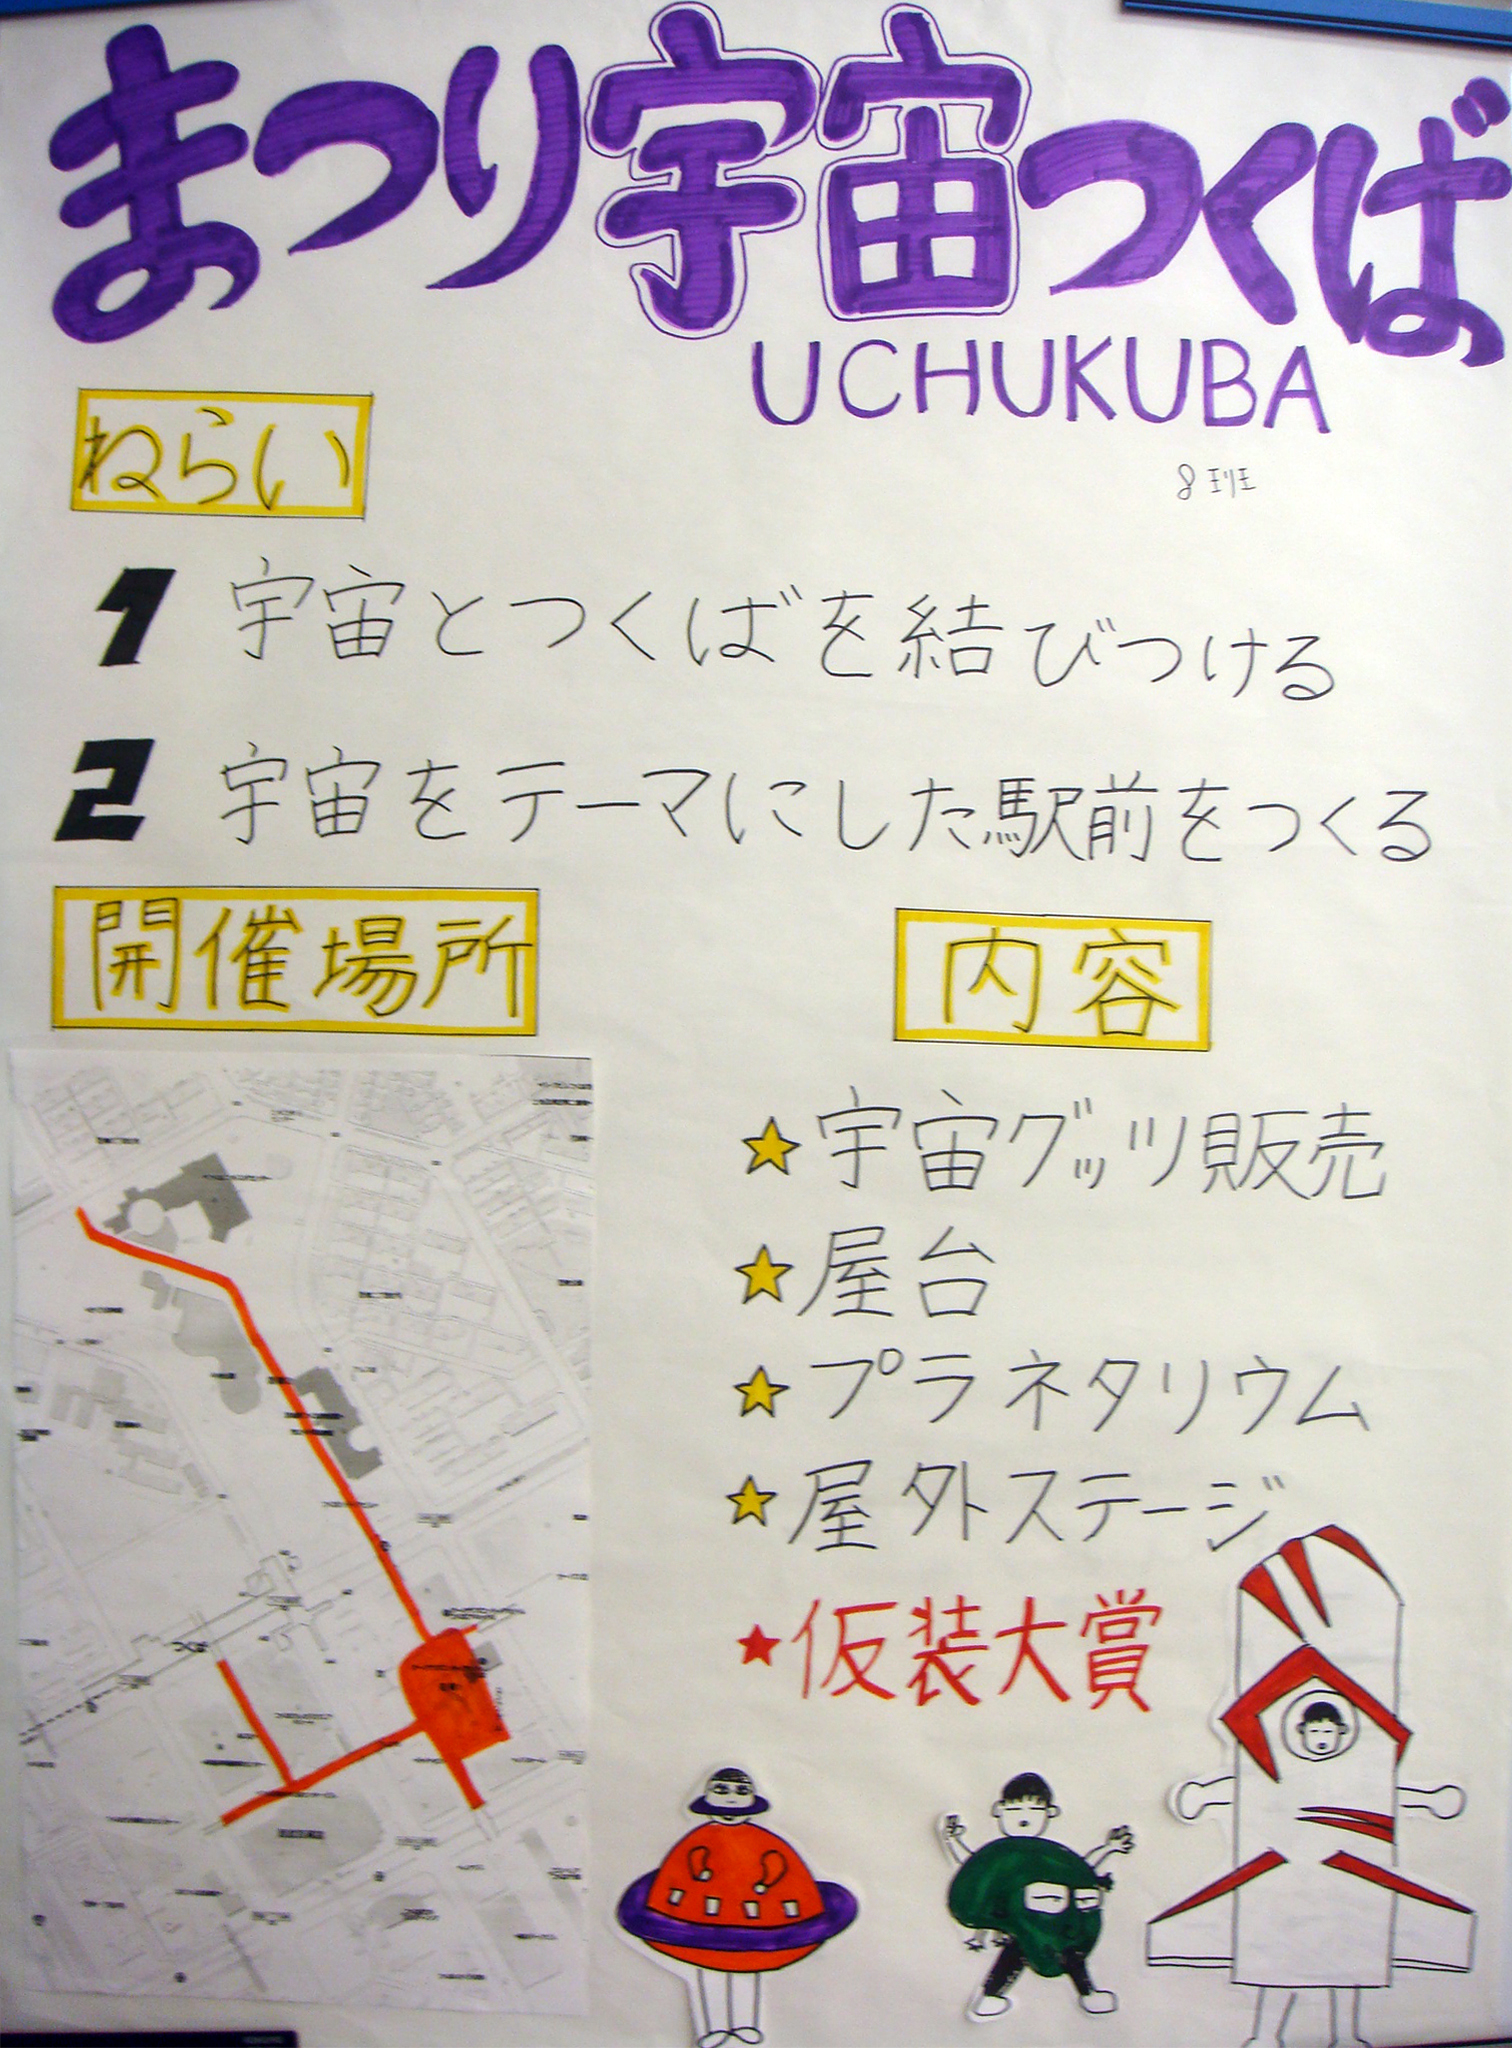 まつり宇宙つくば
UCHUKUBA
8班
ねらい
1 宇宙とつくばを結びつける
2 宇宙をテーマにした駅前をつくる
開催場所
内容
★宇宙グッツ販売
★屋台
★プラネタリウム
★屋外ステージ
★仮装大賞